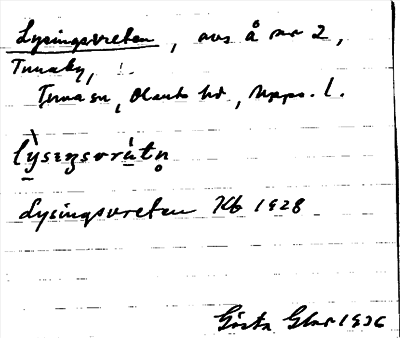 Lysingsvreten, avs å nr 2,
Tunaby,
Tuna sn, Olands hd, Upps. l.
lỳsɪŋsvrètn̥
Lysingsvreten Kb 1928
Gösta 1936